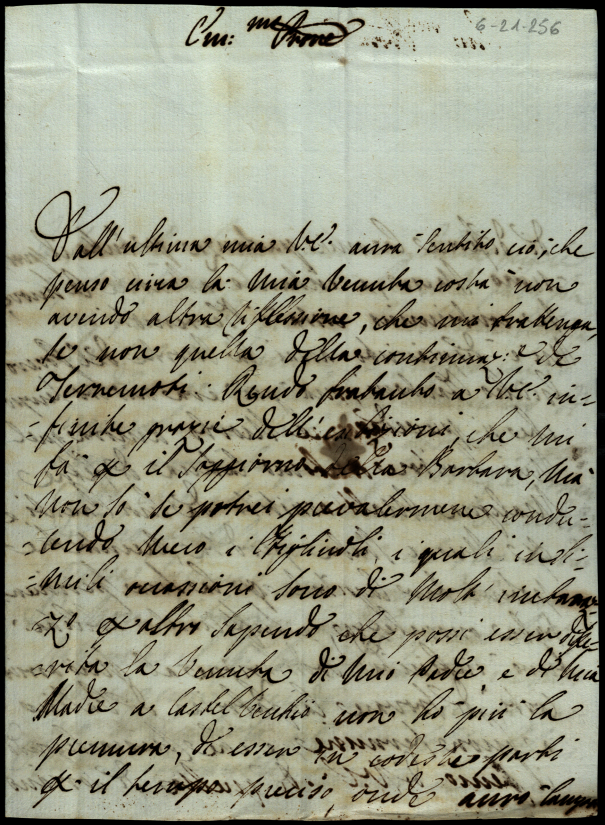 6-21-256
Em: me Prone
Dall'ultima mia VE. avrà sentito ciò, che
penso circa la mia venuta costà non
avendo altra riflessione, che mi trattenga,
se non quella della continuaz:e de
Terremoti. Rendo frattanto a VE. in-
-finite grazie dell' che mi
fà p il soggiorno Barbara, mà
non sò se potrei prevalermene condu-
-cendo meco i Figliuoli, i quali in si-
-mili occasioni sono di molto imbaraz-
-zo p altro sapendo che possi esser diffe-
-rita la venuta di mio Padre e di mia
Madre a Castelvecchio non hò più la
premura, di esser in codeste parti
p il tempo preciso, onde avrò